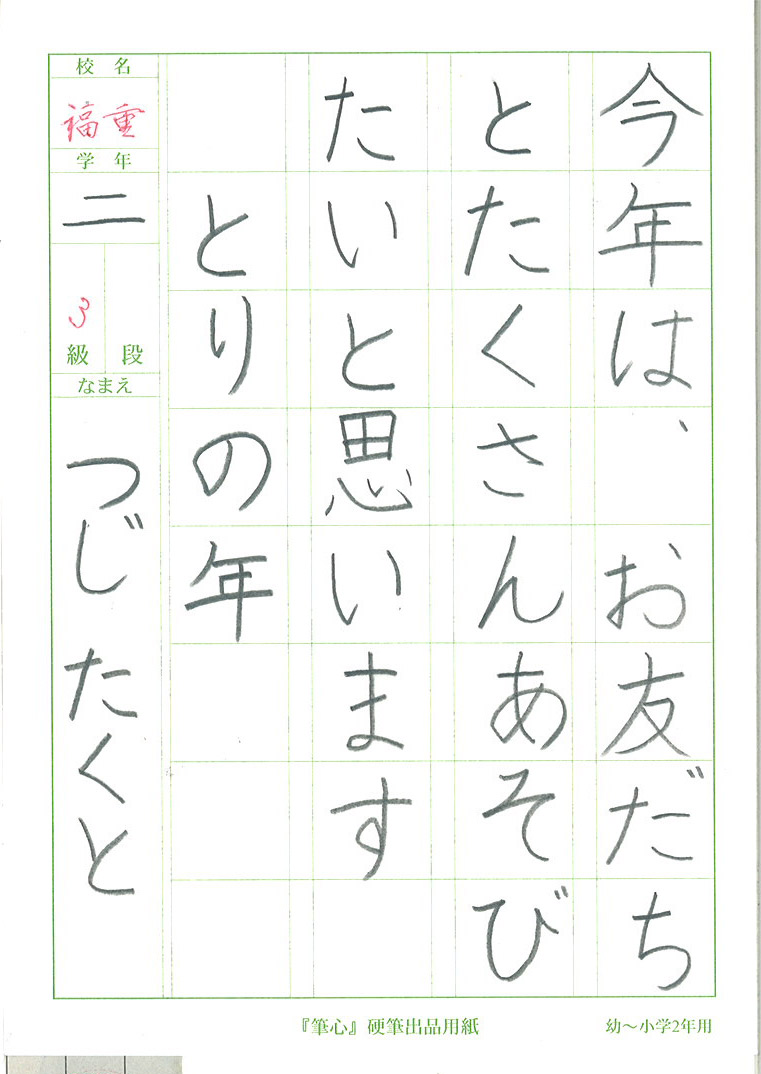 今年は、お友だち
とたくさんあそび
たいと思います
とりの年
校名
福重
学年
二
3
級 段
なまえ
つじ たくと
『筆心』硬筆出品用紙
幼〜小学2年用